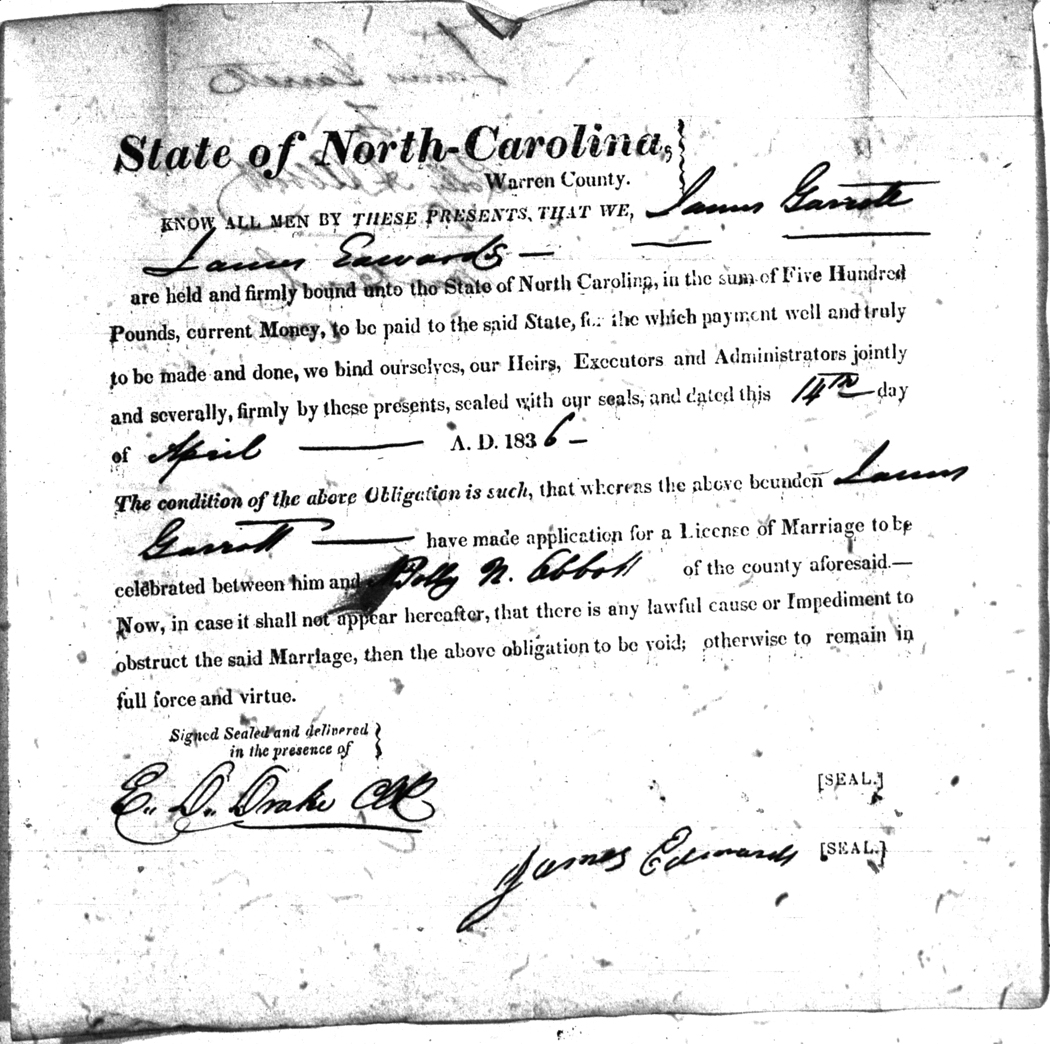 State of North-Carolina,
Warren County.
KNOW ALL MEN BY THESE PRESENTS, THAT WE, James Garrott
James Edwards —
are held and firmly bound unto the State of North Carolina, in the sum of Five Hundred
Pounds, current Money, to be paid to the said State, for the which payment well and truly
to be made and done, we bind ourselves, our Heirs, Executors and Administrators jointly
and severally, firmly by these presents, sealed with our seals, and dated this 14th day
of April — A. D. 1836 —
The condition of the above Obligation is such, that whereas the above bounden James
Garrott — have made application for a License of Marriage to be
celebrated between him and Polly N. Abbott of the county aforesaid.—
Now, in case it shall not appear hereafter, that there is any lawful cause or Impediment to
obstruct the said Marriage, then the above obligation to be void; otherwise to remain in
full force and virtue.
Signed Sealed and delivered
in the presence of
E. D. Drake Clk
[SEAL.]
James Edwards [SEAL.]